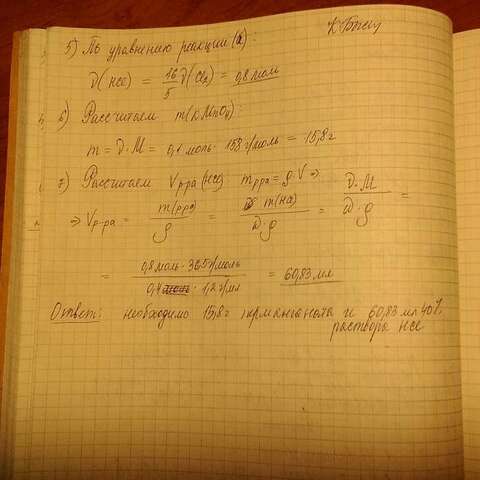 5) По уравнению реакции (2):
ν(HCl) = 16/5 ν(Cl₂) = 0,8 моль
6) Рассчитаем m(KMnO₄):
m = ν·M = 0,1 моль · 158 г/моль = 15,8 г
7) Рассчитаем Vр-ра(HCl): mр-ра = ρ·V ⇒
⇒ Vр-ра = m(р-ра)/ρ = m(HCl)/ω·ρ = ν·M/ω·ρ =
= 0,8 моль · 36,5 г/моль / 0,4 · 1,2 г/мл = 60,83 мл
Ответ: необходимо 15,8 г перманганата и 60,83 мл 40%
раствора HCl